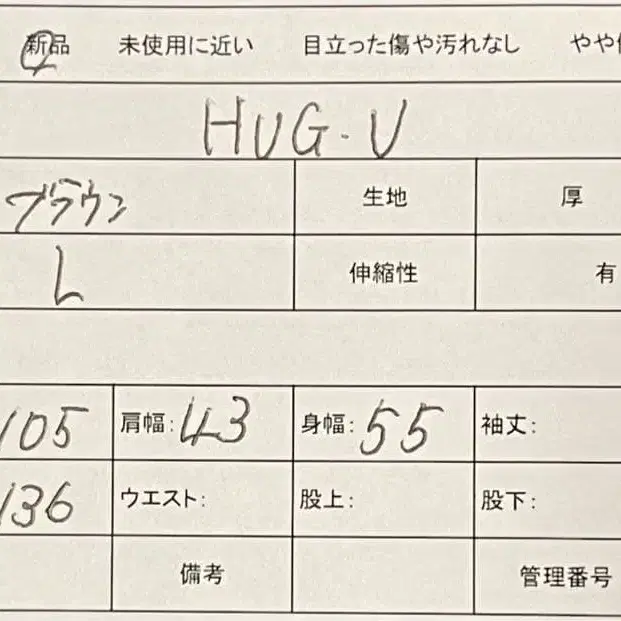 新品 未使用に近い 目立った傷や汚れなし やや
HUG.U
ブラウン 生地 厚
L 伸縮性 有
105 肩幅:43 身幅:55 袖丈:
136 ウエスト: 股上: 股下:
備考 管理番号